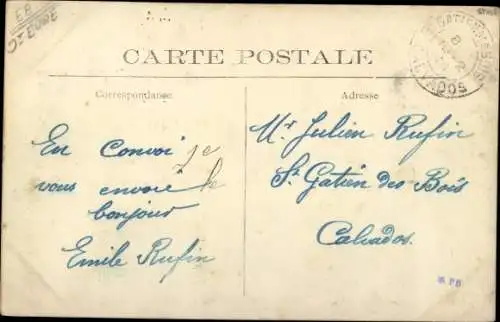 CARTE POSTALE
Correspondance
En Convoi je
vous envoie le
bonjour
Emile Rufin
Adresse
Mr Julien Rufin
St Gatien des Bois
Calvados.